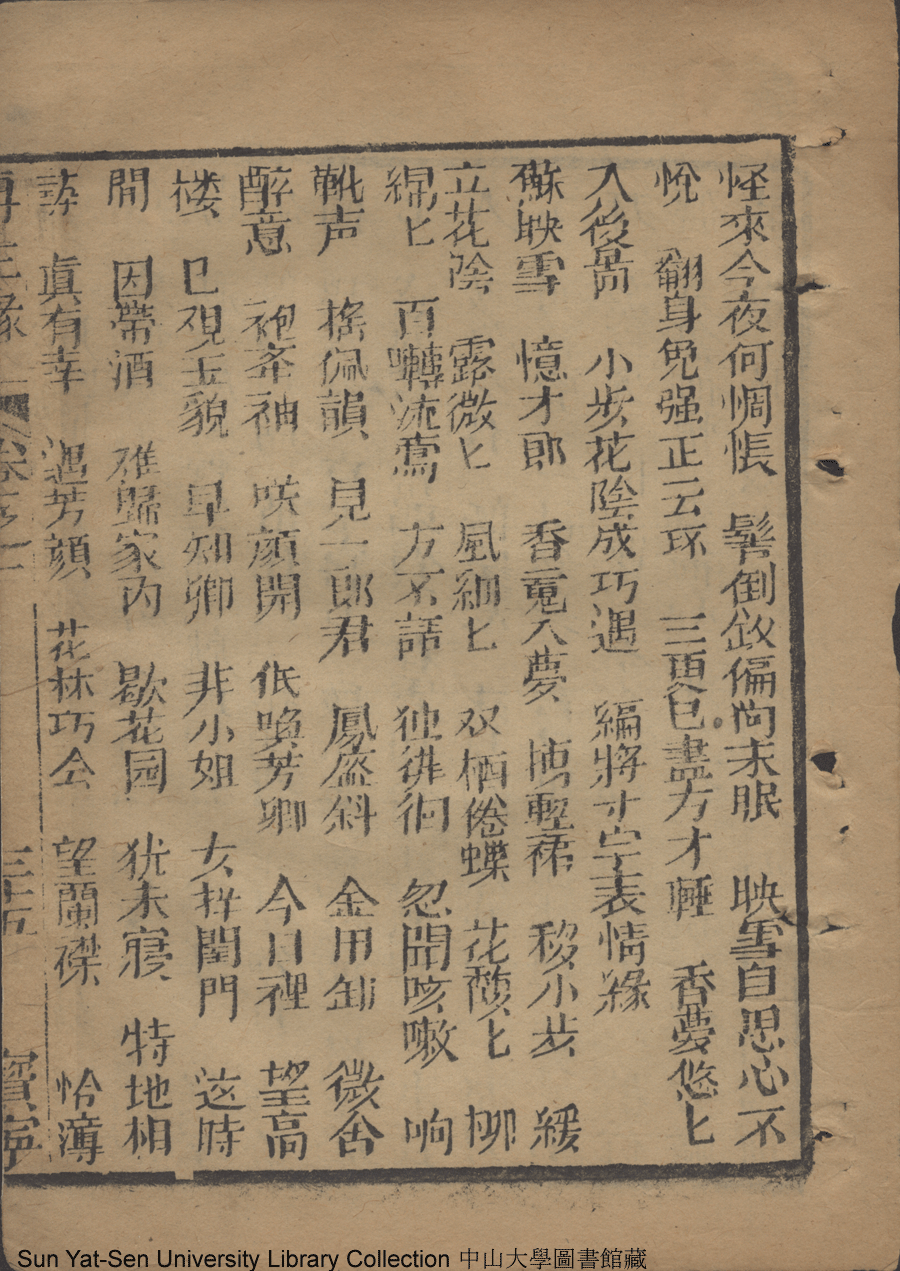 怪來今夜何惆悵 鬢倒敛偏尚未眠 映雪自思心不
悅 翻身免强正云环 三更已盡方才睡 香夢悠匕
入後啚 小步花陰成巧遇 編將才字表情緣
蘇映雪 憶才郎 香䰟入夢 拽輕裙 移小步 緩
立花陰 露微匕 風細匕 双栖倦蝶 花酸匕 柳
綿匕 百囀流鶯 方不語 独徘徊 忽聞咳嗽 响
靴声 搖佩韻 見一郎君 鳳盔斜 金甲卸 微含
醉意 袍窄袖 咲顔開 低喚芳卿 今日裡 望高
楼 已覌玉貌 早知卿 非小姐 女扮閨門 这時
間 因帶酒 难歸家內 歇花园 犹未寢 特地相
尋 真有幸 遇芳顔 花林巧会 望闌襟 恰薄
再生緣 卷之一 三十五 寳寧